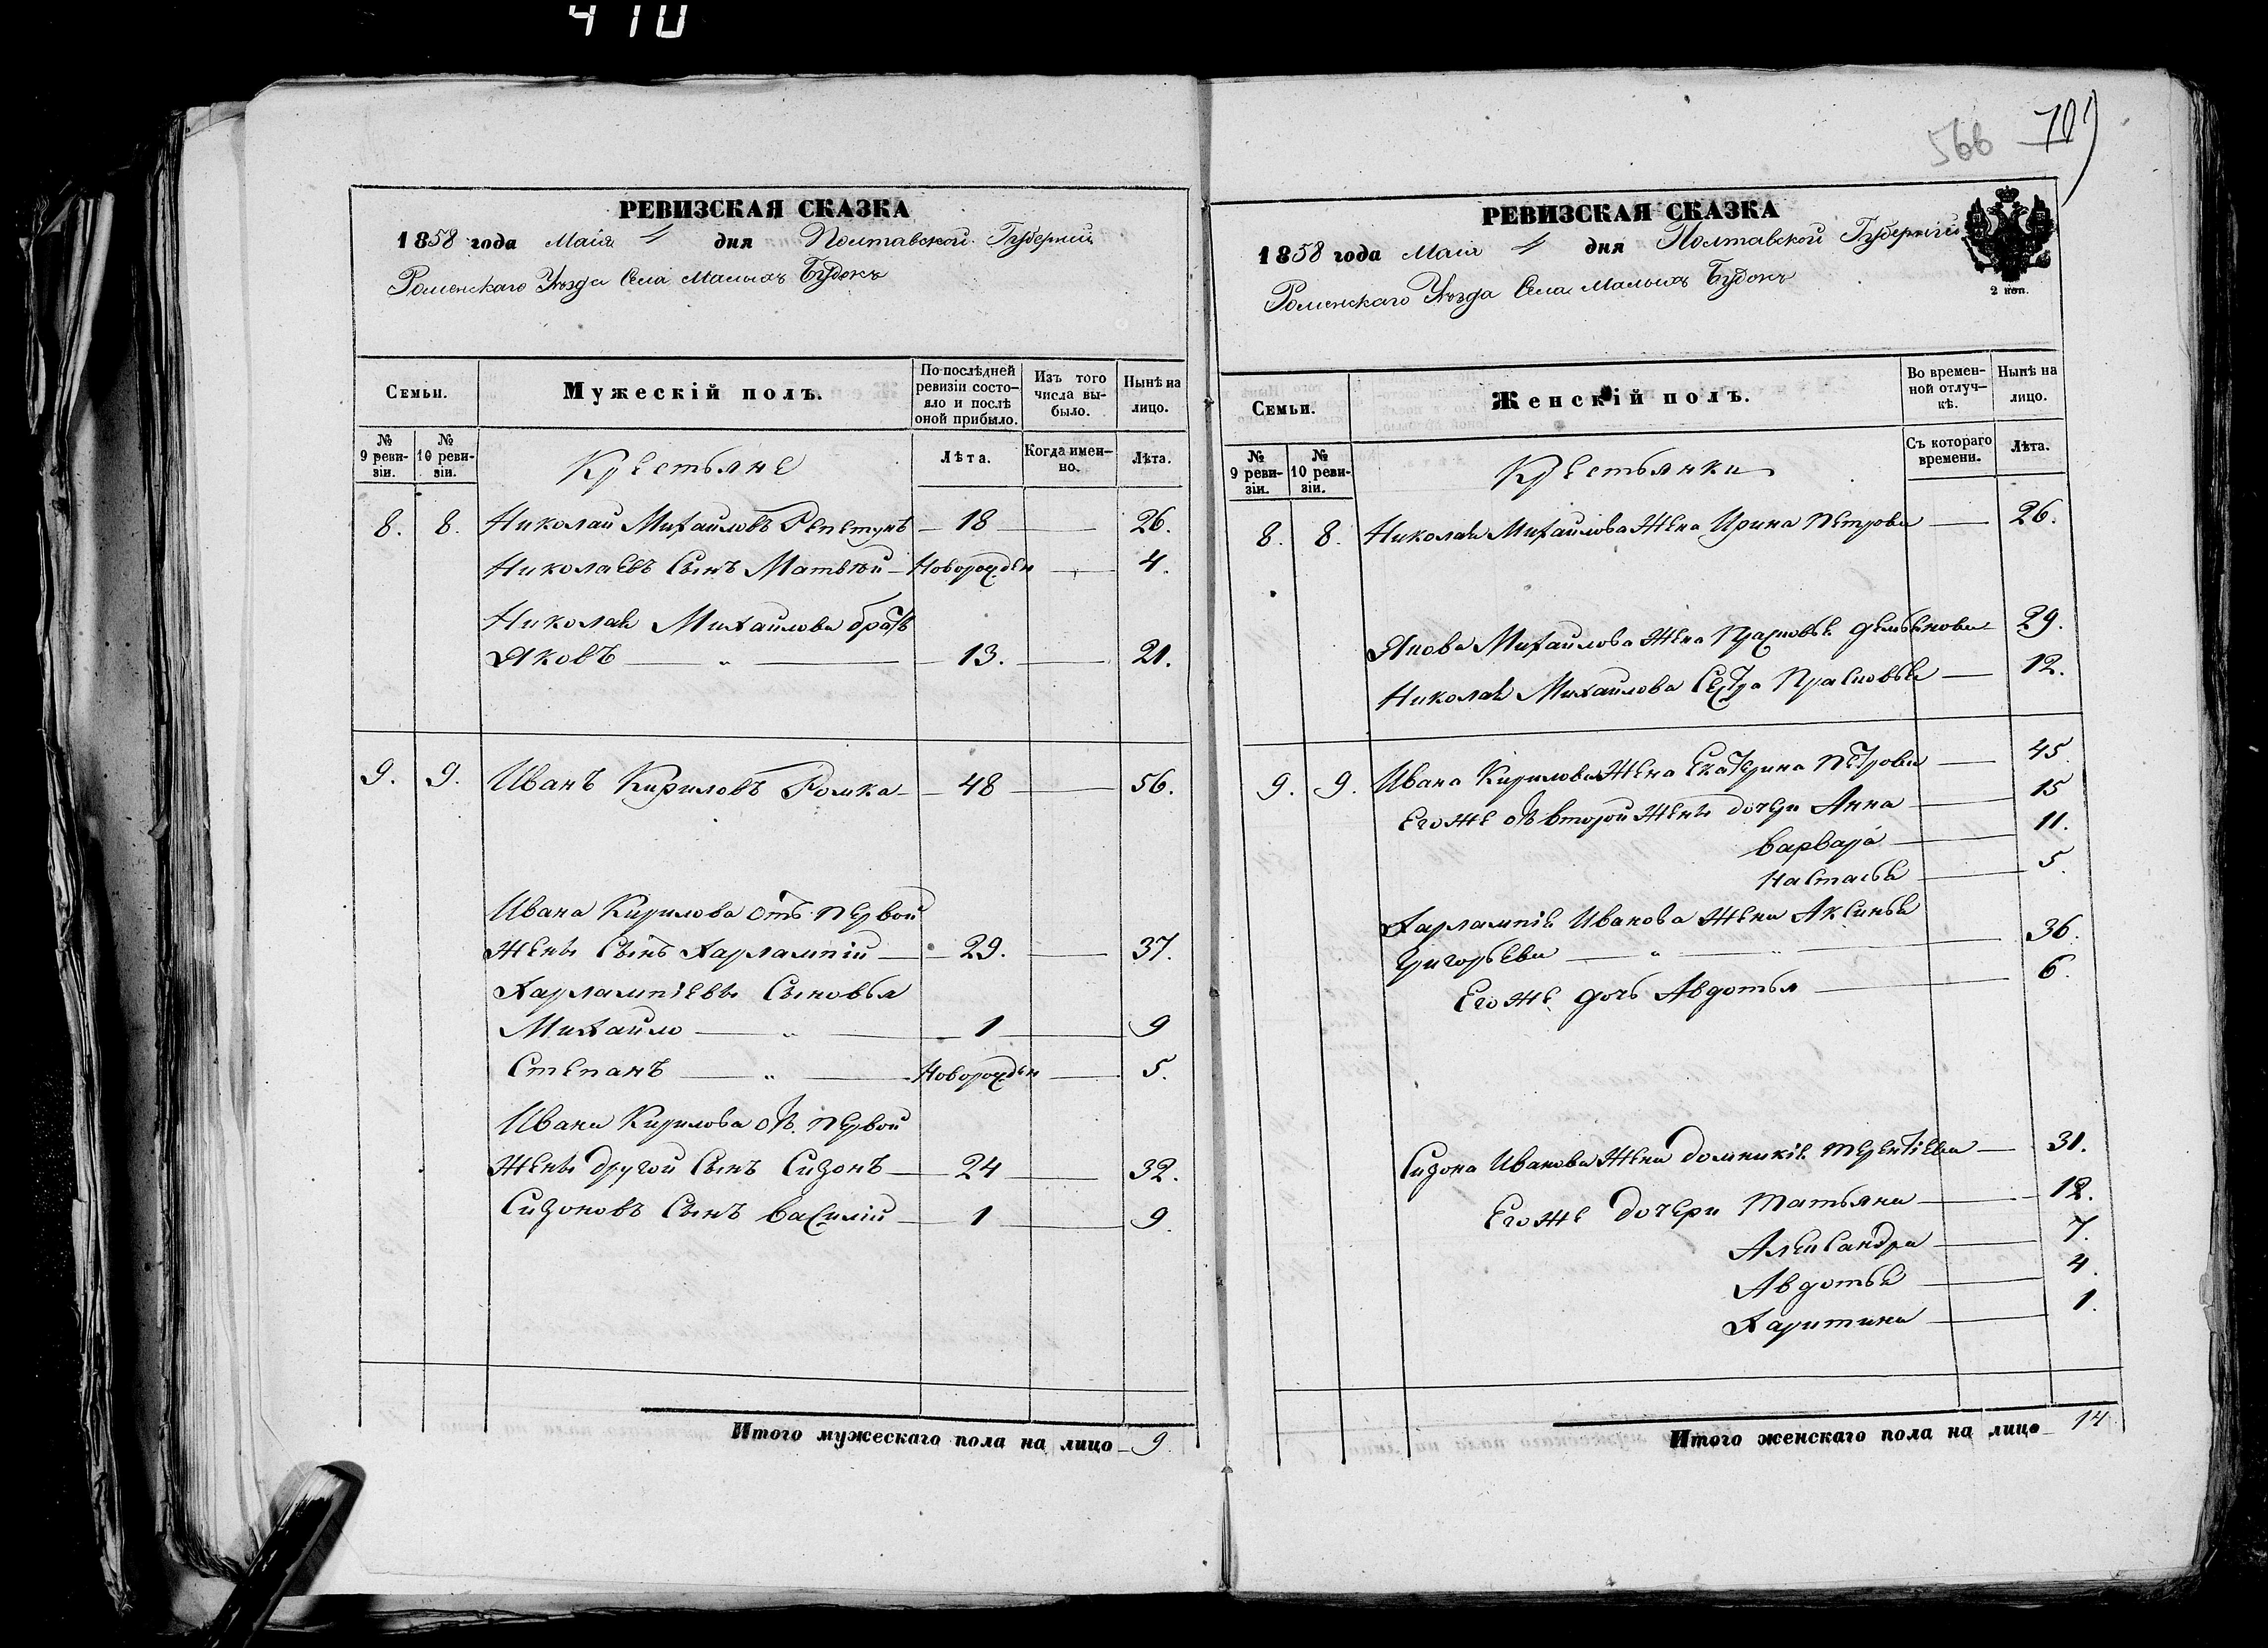 410
РЕВИЗСКАЯ СКАЗКА
1858 года Маія 4 дня Полтавской Губерніи
Роменскаго Уѣзда Села Малыхъ Будокъ
Семьи.
Мужескій полъ.
По послѣдней ревизіи состояло и послѣ оной прибыло.
Изъ того числа выбыло.
Нынѣ на лицо.
№ 9 ревизіи.
№ 10 ревизіи.
Крестьяне
Лѣта.
Когда именно.
Лѣта.
8. 8. Николай Михайловъ Репетунъ — 18 — 26.
Николаевъ Сынъ Матвѣй — Новорожден — 4.
Николая Михайлова братъ
Яковъ — " — 13. — 21.
9. 9. Иванъ Кириловъ Ромка — 48 — 56.
Ивана Кирилова отъ первой
жены Сынъ Харлампій — 29. — 37.
Харлампіевы Сыновья
Михайло — " — 1 — 9
Степанъ — " — Новорожден — 5.
Ивана Кирилова отъ первой
Жены другой Сынъ Сизонъ — 24 — 32.
Сизоновъ Сынъ Василій — 1 — 9.
Итого мужескаго пола на лицо 9.
566
РЕВИЗСКАЯ СКАЗКА
1858 года Маія 4 дня Полтавской Губерніи
Роменскаго Уѣзда Села Малыхъ Будокъ
2 коп.
Семьи.
Женскій полъ.
Во временной отлучкѣ.
Нынѣ на лицо.
№ 9 ревизіи.
№ 10 ревизіи.
Крестьянки
Съ котораго времени.
Лѣта.
8. 8. Николая Михайлова Жена Ирина Петрова — 26.
Якова Михайлова Жена Прасковья Демьянова — 29.
Николая Михайлова Сестра Прасковья — 12.
9. 9. Ивана Кирилова Жена Екатерина Петрова — 45
Его же отъ второй жены дочери Анна — 15
Варвара — 11.
Настасья — 5.
Харлампія Иванова Жена Аксинья
Григорьева — " — " — 36.
Его же дочь Авдотья — 6.
Сизона Иванова Жена Домникія Терентіева — 31.
Его же дочери Татьяна — 12.
Александра — 7.
Авдотья — 4.
Харитина — 1.
Итого женскаго пола на лицо 14